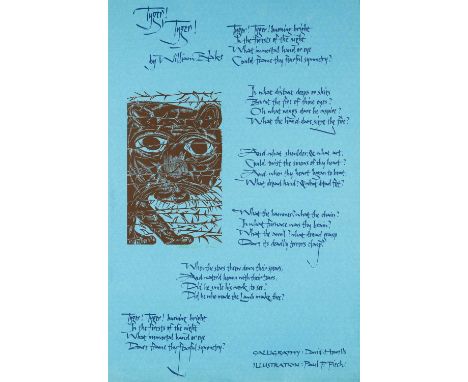 Tyger!
Tyger!
by William Blake
Tyger! Tyger! burning bright
In the forests of the night
What immortal hand or eye
Could frame thy fearful symmetry?
In what distant deeps or skies
Burnt the fire of thine eyes?
On what wings dare he aspire?
What the hand dare seize the fire?
And what shoulder, & what art,
Could twist the sinews of thy heart?
And when thy heart began to beat,
What dread hand? & what dread feet?
What the hammer? what the chain?
In what furnace was thy brain?
What the anvil? what dread grasp
Dare its deadly terrors clasp?
When the stars threw down their spears,
And water'd heaven with their tears,
Did he smile his work to see?
Did he who made the Lamb make thee?
Tyger! Tyger! burning bright
In the forests of the night
What immortal hand or eye
Dare frame thy fearful symmetry?
CALLIGRAPHY: David Howells
ILLUSTRATION: Paul P. Piech